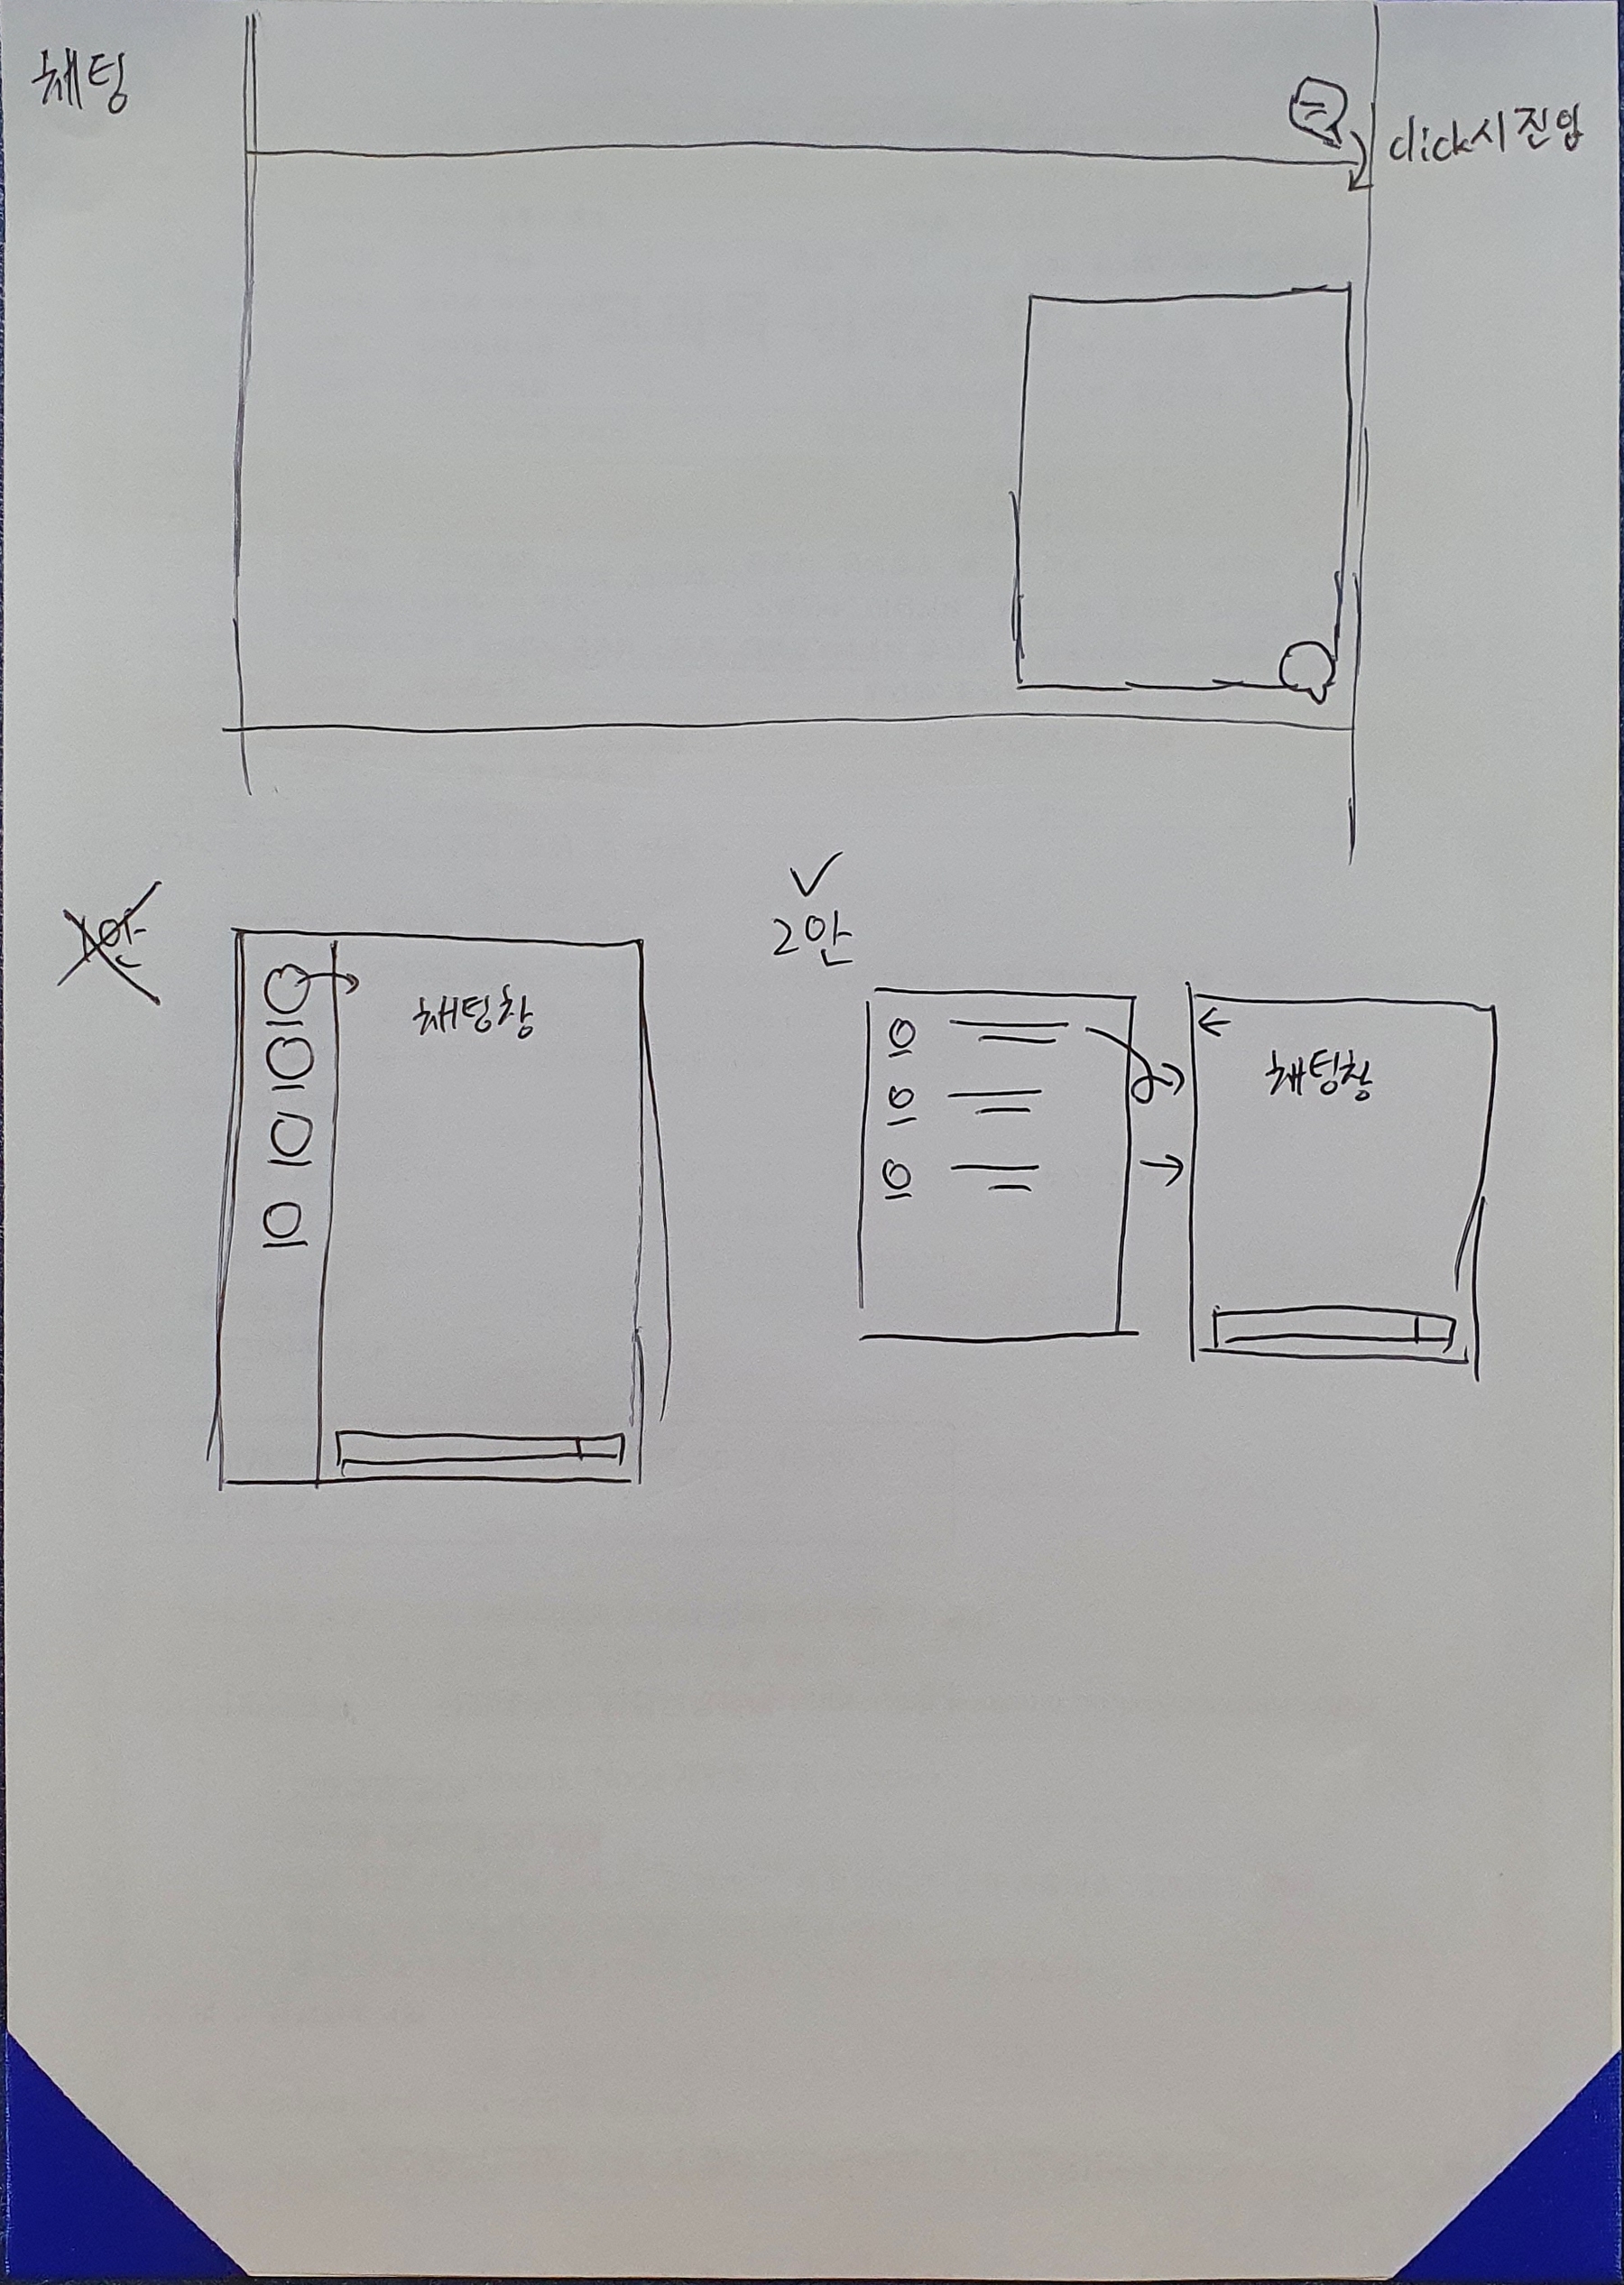 채팅
click시 진입
1안
채팅창
2안
채팅창